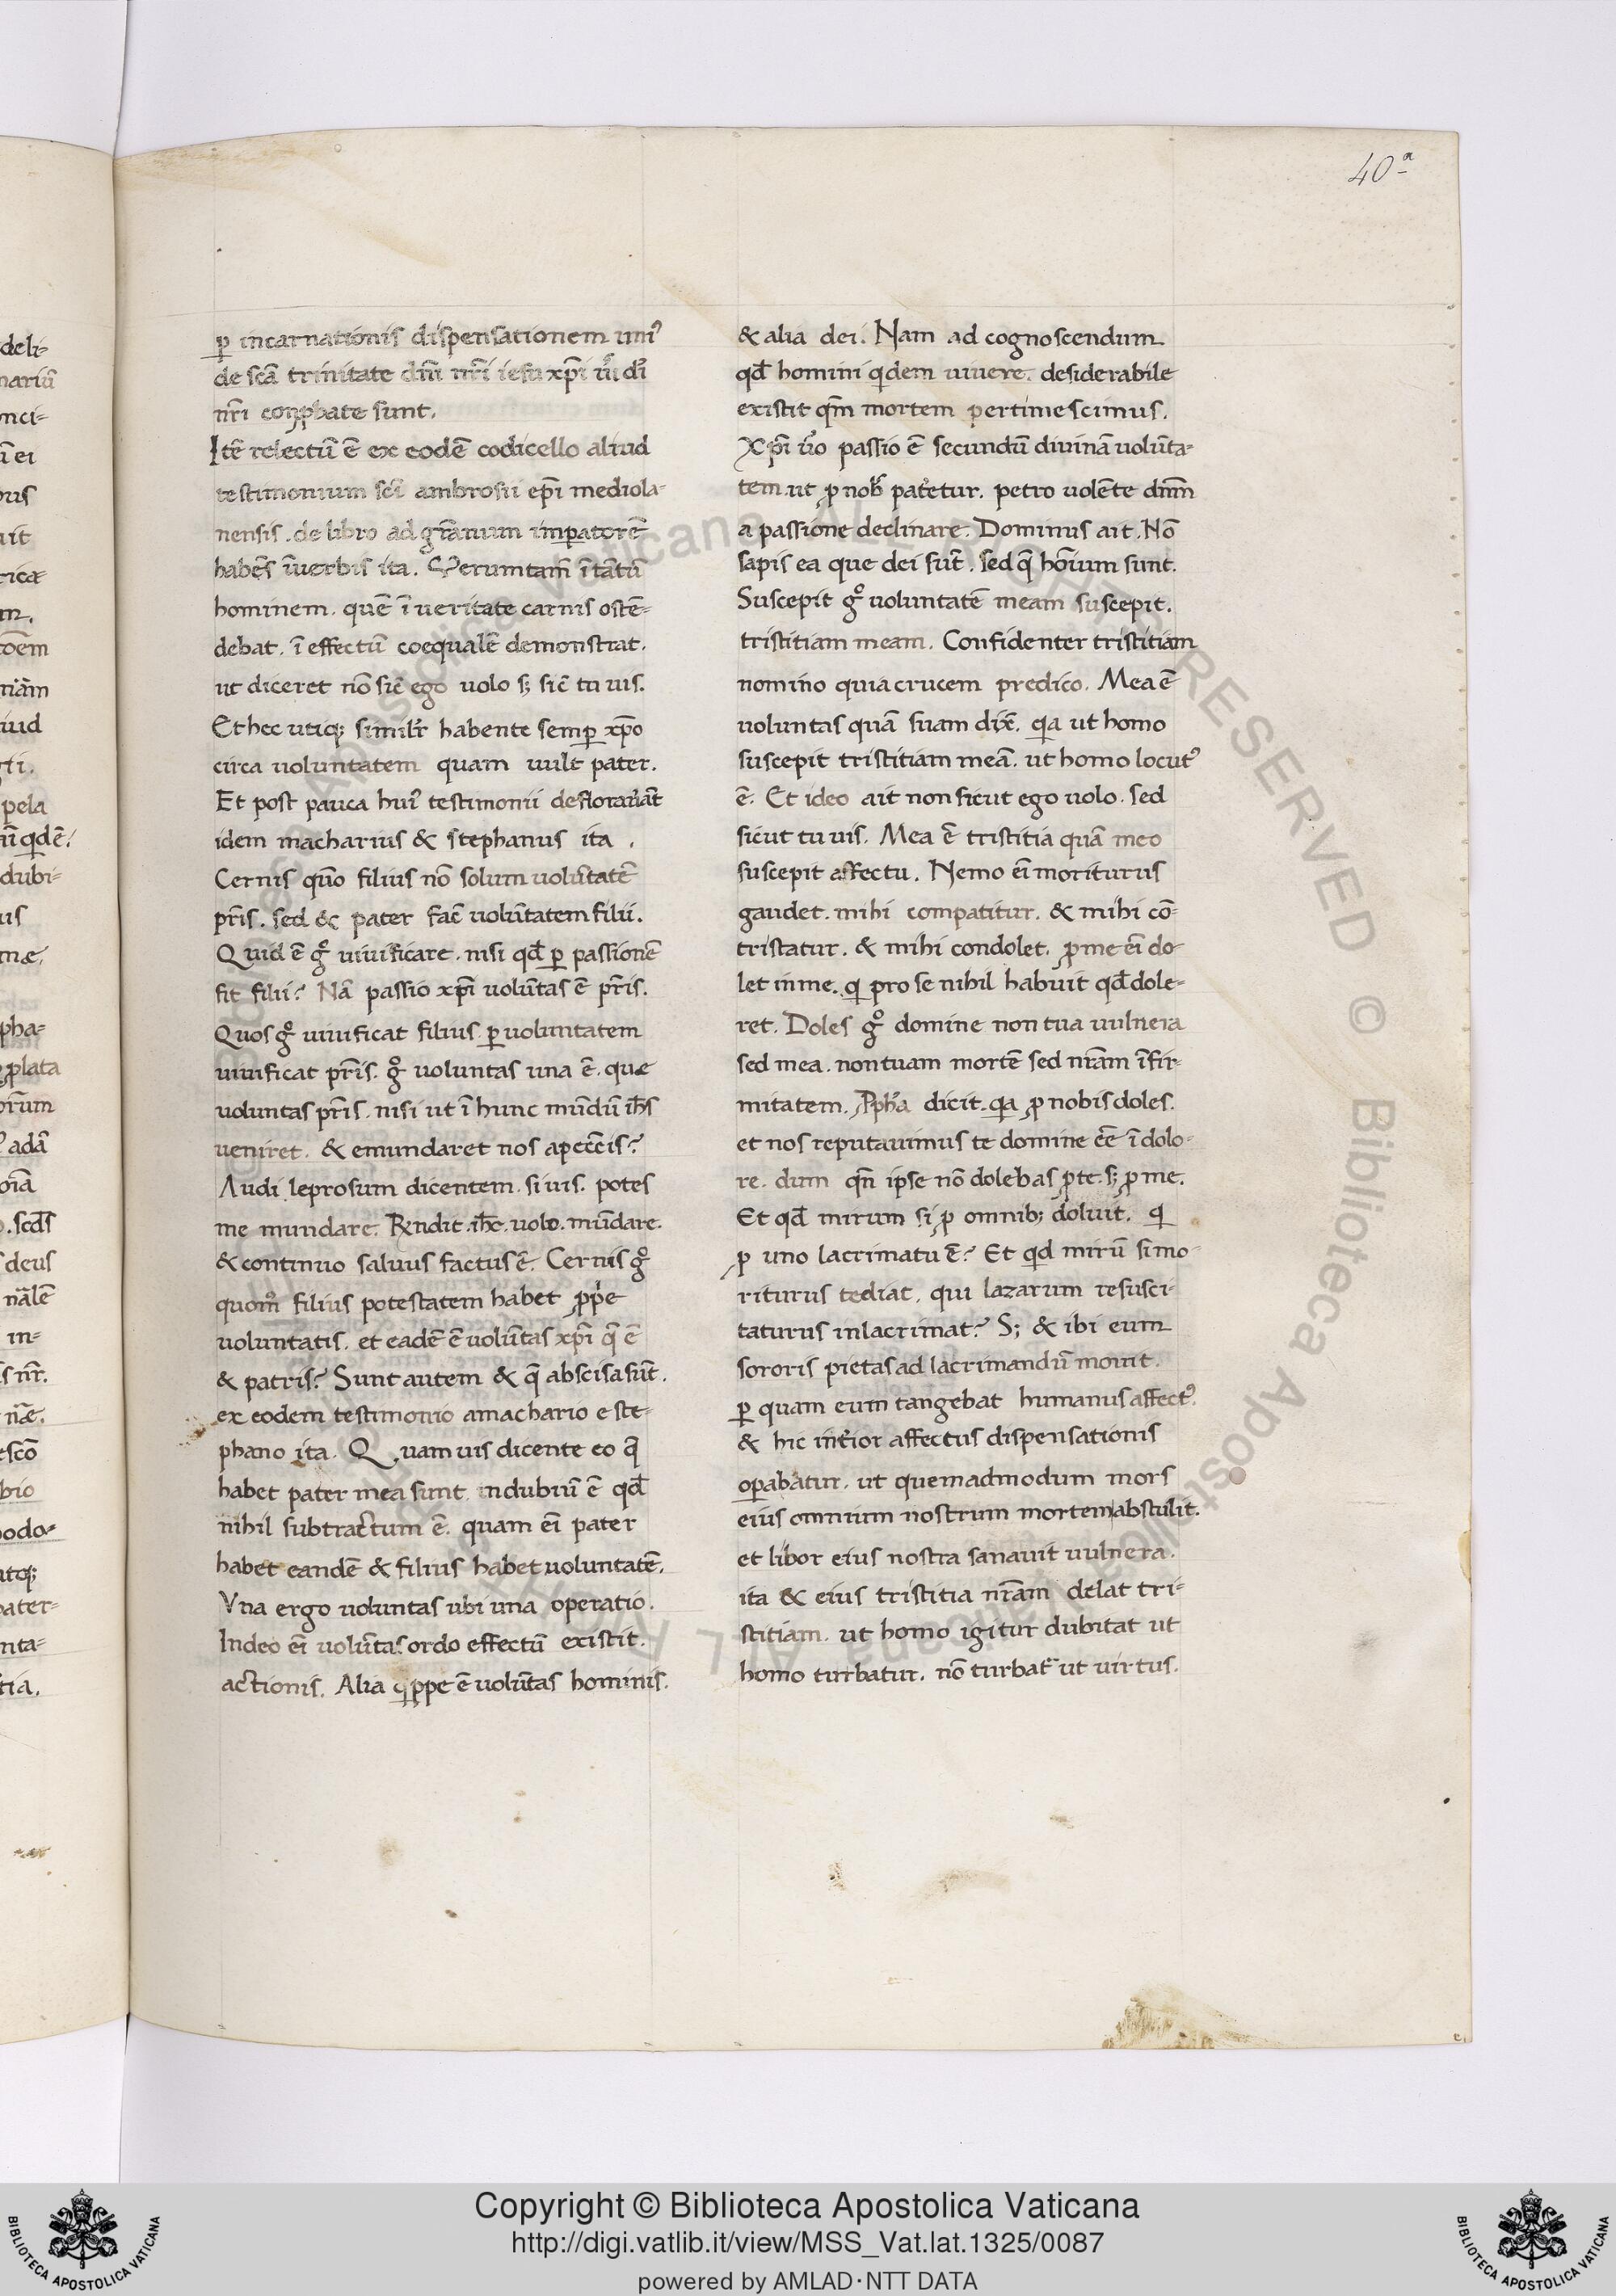 40.ª
deli-
nariū
onci-
ī ei
ous
uit
ricæ
m.
cōem
nām
iud
gti.
pela
nī qdē.
dubi-
us
næ,
pha-
ꝓlata
orum
adā
oīā
scds
deus
nālē
in-
s nr̄.
nāe.
escō
bio
podo-
utq;
pater-
nta-
tia.
ꝑ incarnationis dispensationem uni⁹
de scā trinitate dn̄i nr̄i iesu xp̄i ūi dī
nr̄i conꝓbate sunt.
Itē relectū ē ex eodē codicello aliud
testimonium scī ambrosii ep̄i mediola-
nensis. de libro ad gr̄anum imꝑatorē
habēs ī uerbis ita. Verumtam̄ ī tātū
hominem. quē ī ueritate carnis ostē-
debat. ī effectū coequalē demonstrat.
ut diceret nō sic̄ ego uolo s; sic̄ tu uis.
Et hec utiq; simil̄r habente semꝑ xp̄o
circa uoluntatem quam uult pater.
Et post pauca hui⁹ testimonii deflorar̄āt
idem macharius & stephanus ita .
Cernis quō filius nō solum uolūtatē
pr̄is. sed & pater fac̄ uolūtatem filii.
Quid ē gͦ uiuificare. nisi qd̄ ꝑ passionē
fit filii? Nā passio xp̄i uolūtas ē pr̄is.
Quos gͦ uiuificat filius. ꝑ uoluntatem
uiuificat pr̄is. gͦ uoluntas una ē. quæ
uoluntas pr̄is. nisi ut ī hunc mūdū ih̄s
ueniret. & emundaret nos apecc̄is?
Audi leprosum dicentem. si uis. potes
me mundare. Rn̄dit. ih̄c. uolo. mūdare.
& continuo saluus factus ē. Cernis gͦ
quom̊ filius potestatem habet ꝓpⁱe
uoluntatis. et eadē ē uolūtas xp̄i q̄ ē
& patris? Sunt autem & q̄ abscisa sūt.
ex eodem testimonio amachario e ste-
phano ita. Quamuis dicente eo q̄
habet pater mea sunt. indubiū ē qd̄
nihil subtractum ē. quam eī pater
habet eandē & filius habet uoluntatē.
Vna ergo uoluntas ubi una operatio.
Indeo eī uolūtas ordo effectū existit.
actionis. Alia qppe ē uolūtas hominis.
& alia dei. Nam ad cognoscendum
qd̄ homini qdem uiuere. desiderabile
existit qm̄ mortem pertimescimus.
Xp̄i ūo passio ē secundū diuinā uolūta-
tem. ut ꝓ nob̄ pat̄etur. petro uolēte dnm̄
a passione declinare. Dominus ait. Nō
sapis ea que dei sūt. sed q̄ hōium sunt.
Suscepit gͦ uoluntatē meam suscepit.
tristitiam meam. Confidenter tristitiam
nomino quia crucem predico. Mea ē
uoluntas quā suam dix̄. qa ut homo
suscepit tristitiam meā. ut homo locut⁹
ē. Et ideo ait non sicut ego uolo. sed
sicut tu uis. Mea ē tristitia quā meo
suscepit affectu. Nemo eī moriturus
gaudet. mihi compatitur. & mihi cō-
tristatur. & mihi condolet. ꝓ me eī do-
let in me. q pro se nihil habuit qd̄ dole-
ret. Doles gͦ domine non tua uulnera
sed mea. non tuam mortē sed nr̄am īfir-
mitatem. Ꝓph̄a dicit. qa ꝓ nobis doles.
et nos reputauimus te domine ēē ī dolo-
re. dum qn̄ ipse nō dolebas ꝓ te. s; ꝓ me.
Et qd̄ mirum si ꝓ omnib; doluit. q
ꝓ uno lacrimatu ē? Et qd mirū si mo-
riturus tediat. qui lazarum resusci-
taturus inlacrimat? S; & ibi eum
sororis pietas ad lacrimandū mouit.
ꝑ quam eum tangebat humanus affect⁹.
& hic int̄ior affectus dispensationis
oꝑabatur. ut quemadmodum mors
eius omnium nostrum mortem abstulit.
et libor eius nostra sanauit uulnera.
ita & eius tristitia nr̄am delat tri-
stitiam. ut homo igitur dubitat ut
homo turbatur. nō turbat̄ ut uirtus.
© Biblioteca Apostolica Vaticana ALL RIGHTS RESERVED
Copyright © Biblioteca Apostolica Vaticana
http://digi.vatlib.it/view/MSS_Vat.lat.1325/0087
powered by AMLAD·NTT DATA
BIBLIOTECA APOSTOLICA VATICANA
BIBLIOTECA APOSTOLICA VATICANA